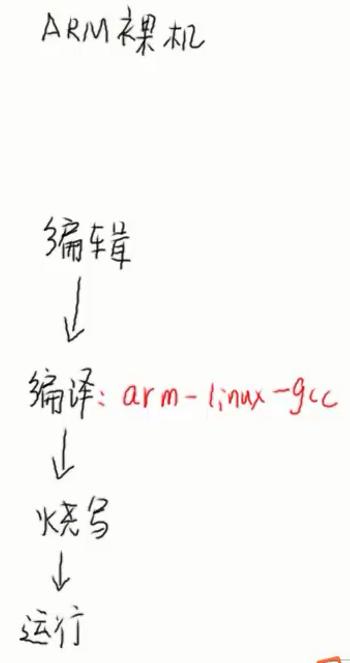 ARM裸机
编辑
编译：arm-linux-gcc
烧写
运行